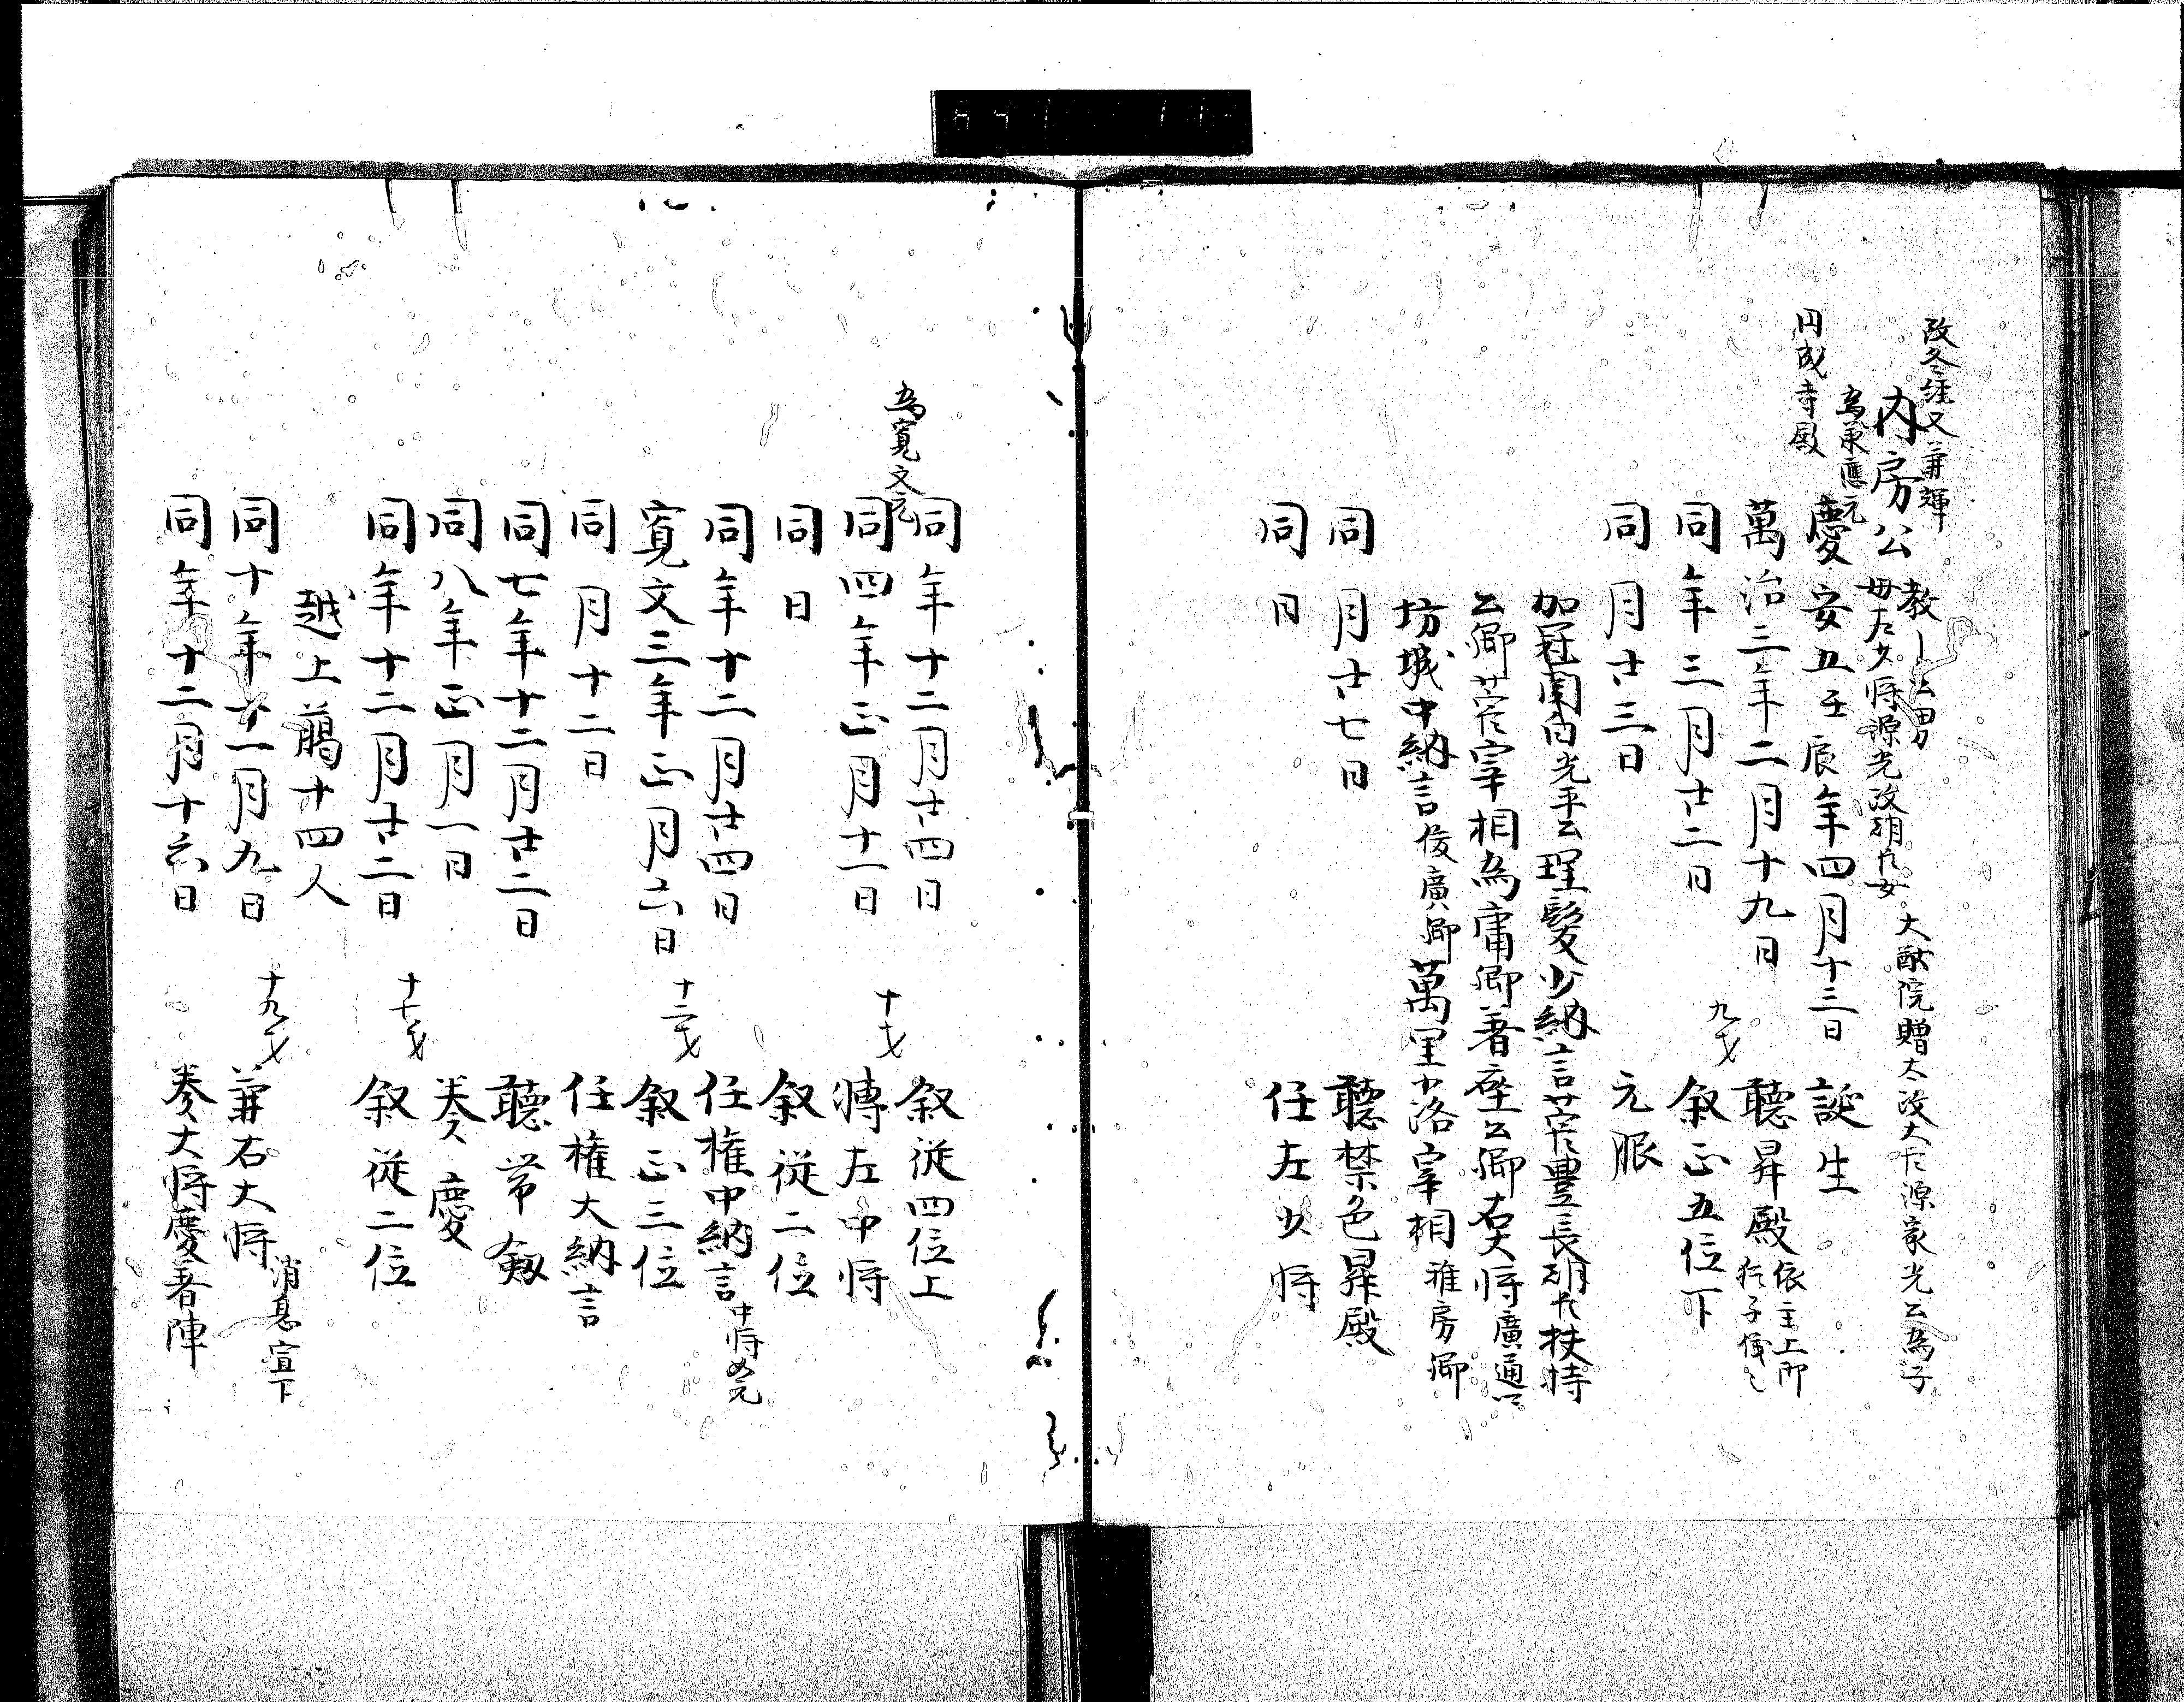 改冬経又兼輝
内房公　教〡公男
母左少将源光政朝臣女　大猷院贈太政大臣源家光公為子
為承應元
円成寺殿
慶安五壬辰年四月十三日　誕生
萬治三年二月十九日　九才　聽昇殿　依主上御猶子儀也
同年三月廿二日　叙正五位下
同月廿三日　元服
加冠関白光平公　理髪少納言菅豊長朝臣扶持
公卿菅宰相為庸卿着座公卿右大将廣通卿
坊城中納言俊廣卿萬里小路宰相雅房卿
同月廿七日　聽禁色昇殿
同日　任左少将
同年十二月廿四日　叙従四位上
為寛文元
同四年正月十一日　十才　轉左中将
同日　叙従三位
同年十二月廿四日　任權中納言　中将如元
寛文三年正月六日　十二才　叙正三位
同月十二日　任權大納言
同七年十二月廿二日　聽帯劔
同八年正月一日　奏慶
同年十二月廿二日　十七才　叙従二位
越上﨟十四人
同十年十一月九日　十九才　兼右大将　消息宣下
同年十二月十六日　奏大将慶着陣